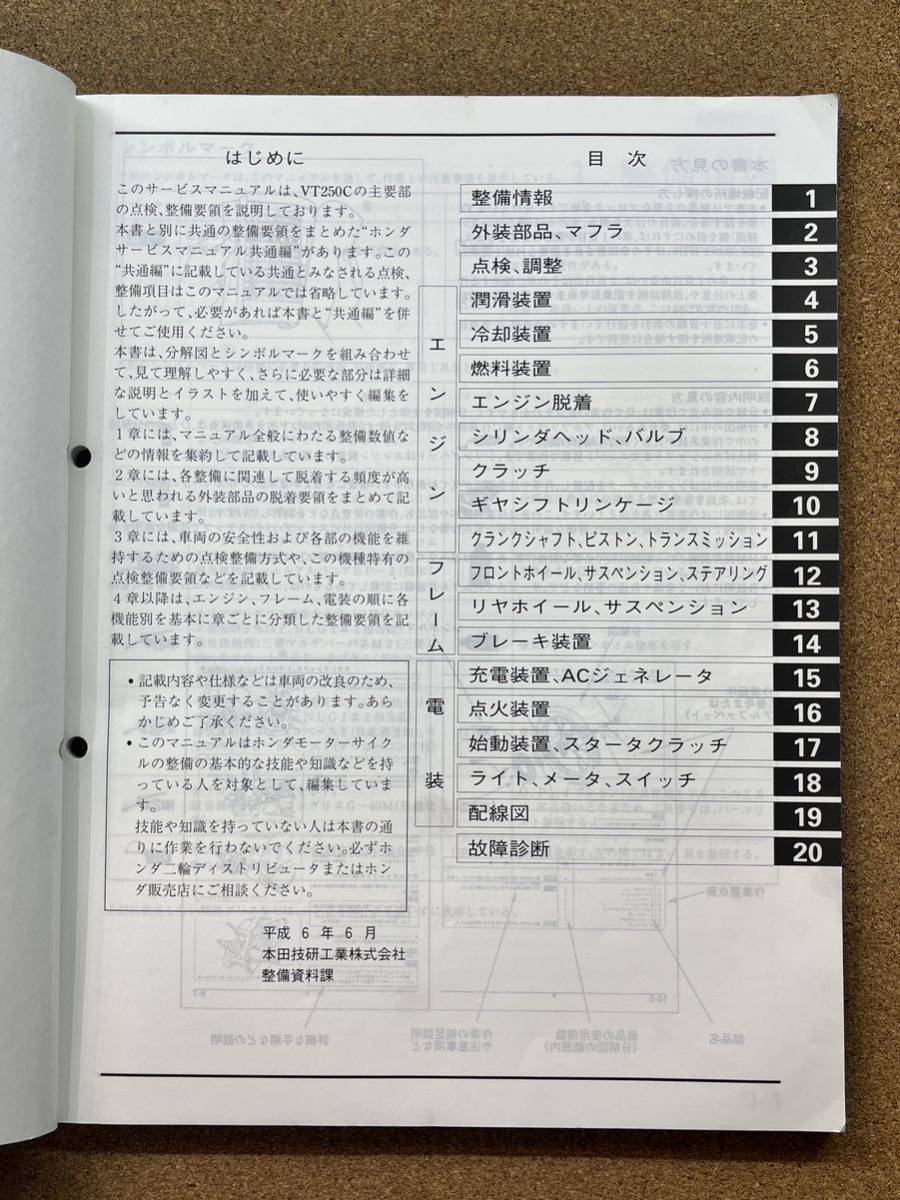 はじめに
このサービスマニュアルは、VT250Cの主要部
の点検、整備要領を説明しております。
本書と別に共通の整備要領をまとめた“ホンダ
サービスマニュアル共通編”があります。この
“共通編”に記載している共通とみなされる点検、
整備項目はこのマニュアルでは省略しています。
したがって、必要があれば本書と“共通編”を併
せてご使用ください。
本書は、分解図とシンボルマークを組み合わせ
て、見て理解しやすく、さらに必要な部分は詳細
な説明とイラストを加えて、使いやすく編集を
しています。
1章には、マニュアル全般にわたる整備数値な
どの情報を集約して記載しています。
2章には、各整備に関連して脱着する頻度が高
いと思われる外装部品の脱着要領をまとめて記
載しています。
3章には、車両の安全性および各部の機能を維
持するための点検整備方式や、この機種特有の
点検整備要領などを記載しています。
4章以降は、エンジン、フレーム、電装の順に各
機能別を基本に章ごとに分類した整備要領を記
載しています。
• 記載内容や仕様などは車両の改良のため、
予告なく変更することがあります。あら
かじめご了承ください。
• このマニュアルはホンダモーターサイク
ルの整備の基本的な技能や知識などを持
っている人を対象として、編集していま
す。
技能や知識を持っていない人は本書の通
りに作業を行わないでください。必ずホ
ンダ二輪ディストリビュータまたはホン
ダ販売店にご相談ください。
平成 6 年 6 月
本田技研工業株式会社
整備資料課
目 次
整備情報 1
外装部品、マフラ 2
点検、調整 3
エンジン
潤滑装置 4
冷却装置 5
燃料装置 6
エンジン脱着 7
シリンダヘッド、バルブ 8
クラッチ 9
ギヤシフトリンケージ 10
クランクシャフト、ピストン、トランスミッション 11
フレーム
フロントホイール、サスペンション、ステアリング 12
リヤホイール、サスペンション 13
ブレーキ装置 14
電装
充電装置、ACジェネレータ 15
点火装置 16
始動装置、スタータクラッチ 17
ライト、メータ、スイッチ 18
配線図 19
故障診断 20